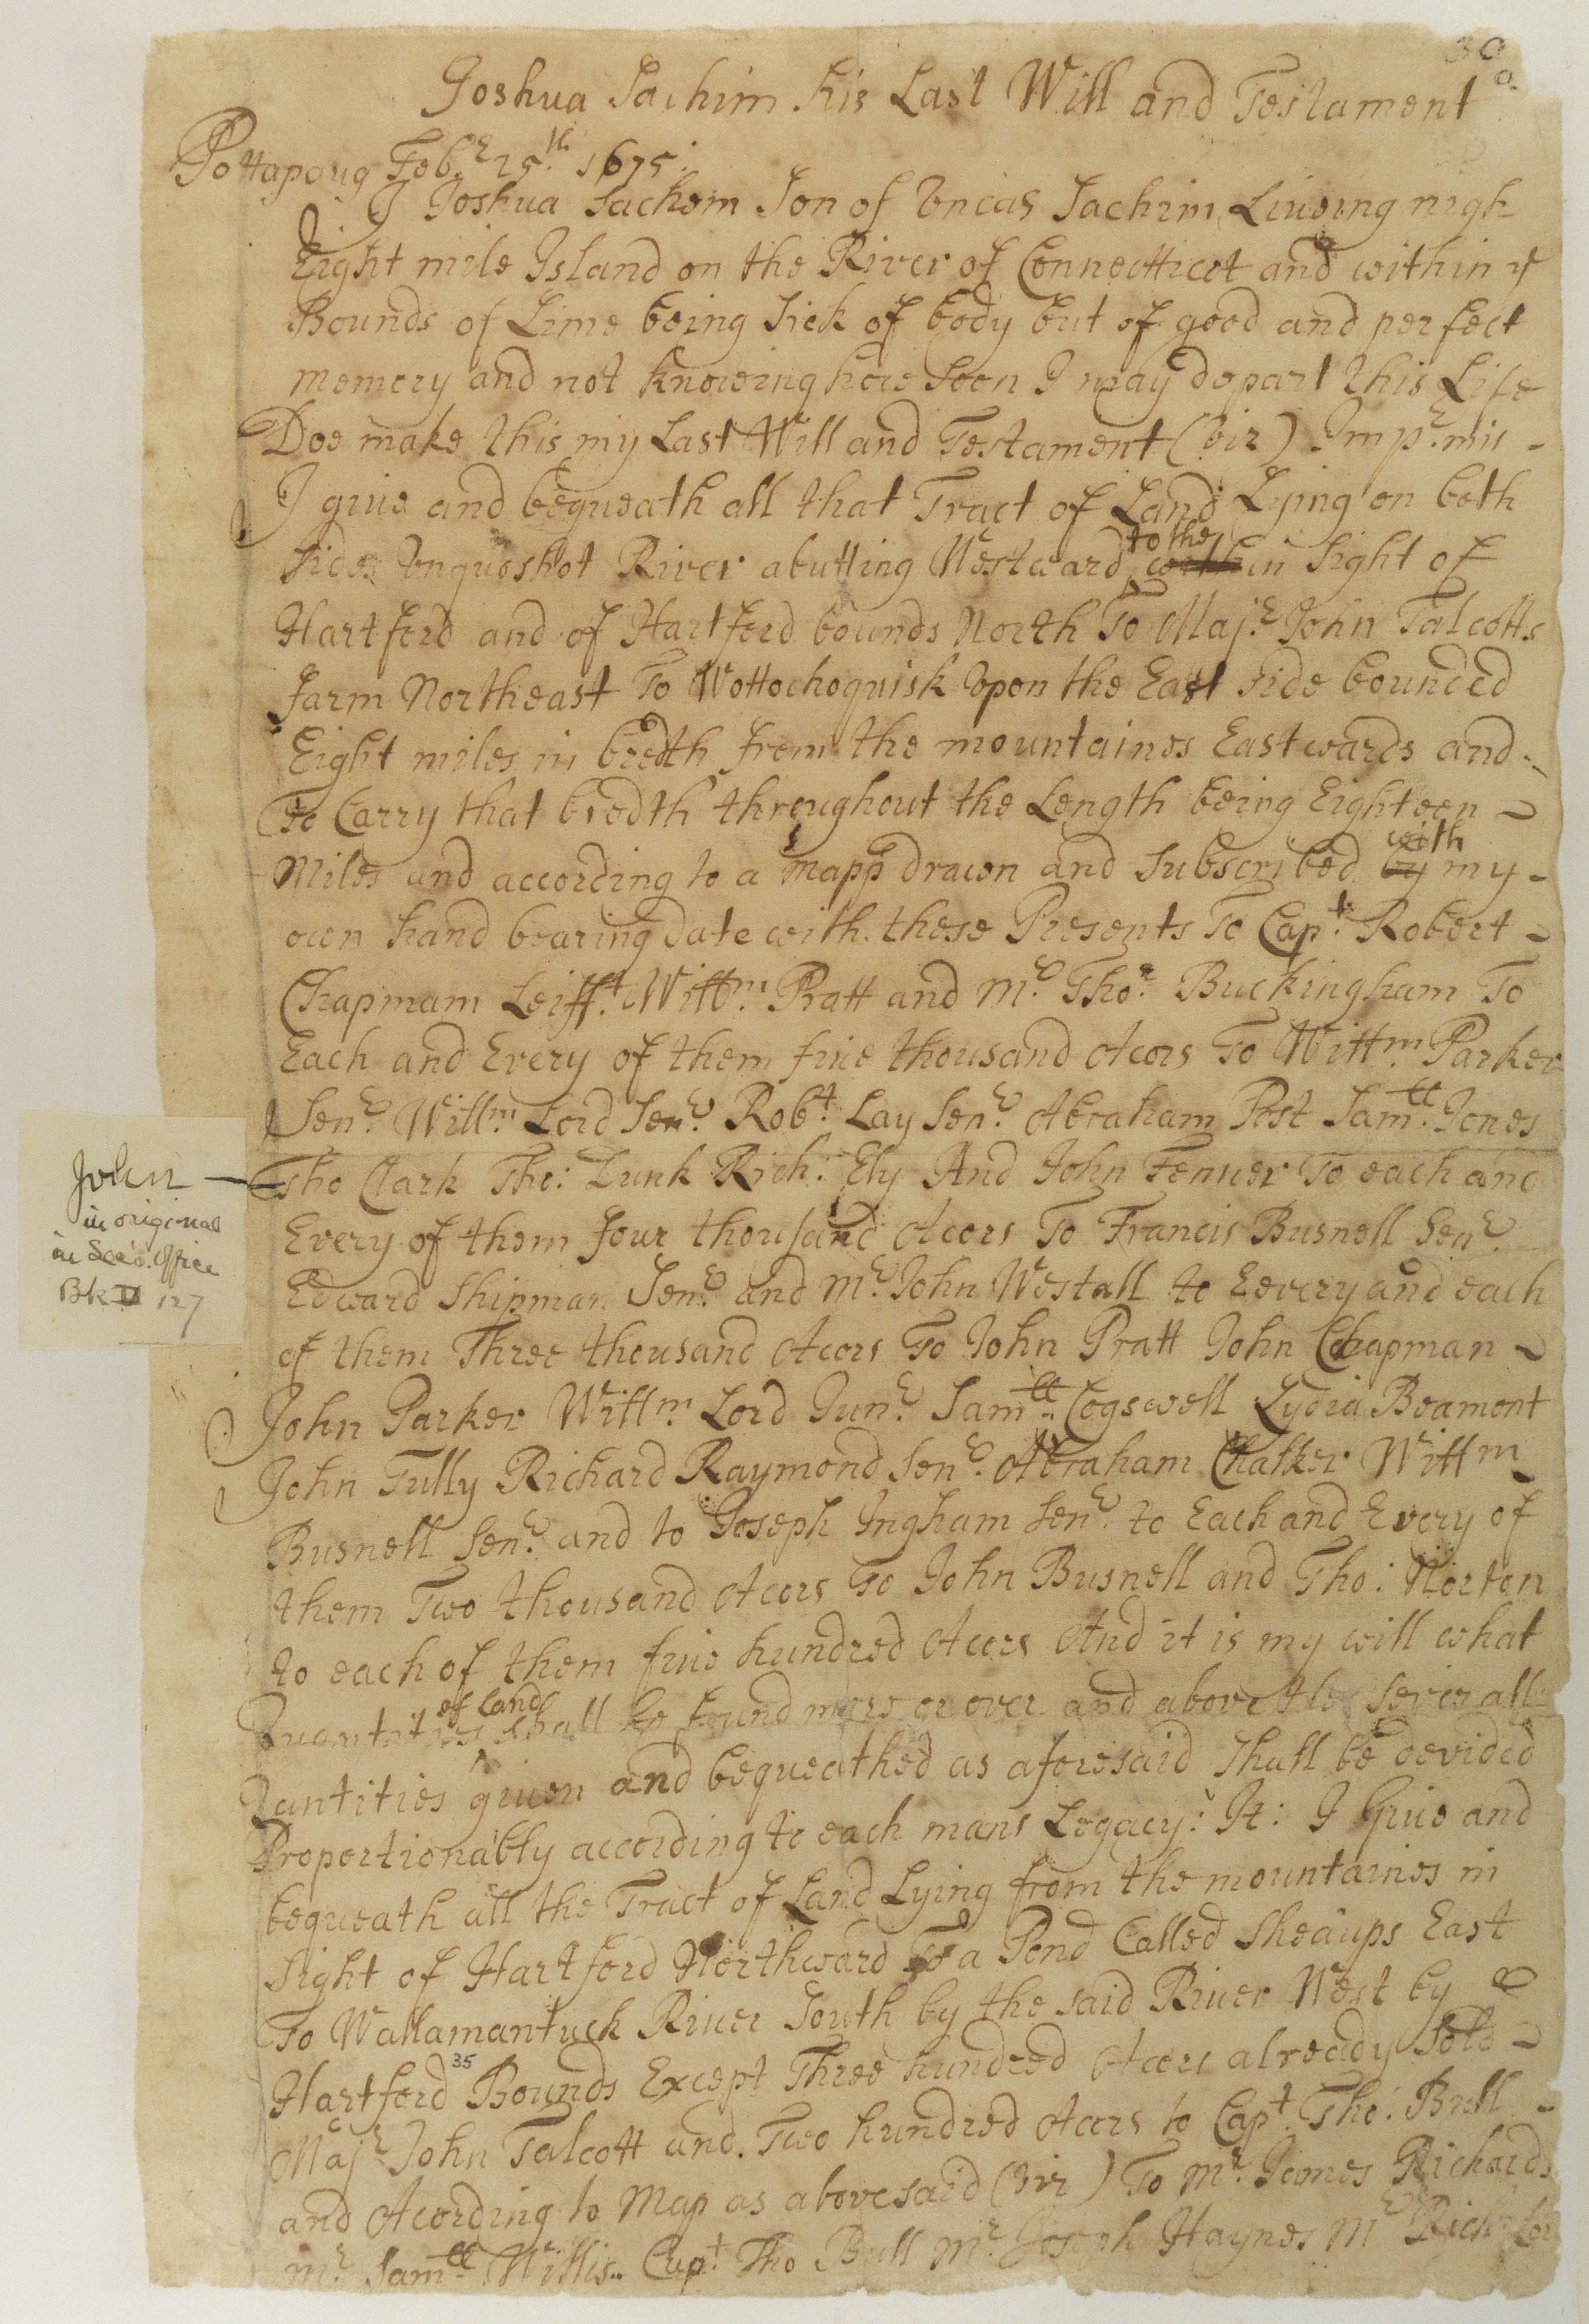 30
Joshua Sachim his Last Will and Testament
Pottapoug Feb.r 25.th 1675.
I Joshua Sachem Son of Vncas Sachim Liueing nigh
Eight mile Island on the River of Connecticot and within ye
Bounds of Lime being Sick of body but of good and perfect
memory and not knowing how soon I may depart this Life
Doe make this my Last Will and Testament (viz) Imp.rmis -
I giue and bequeath all that Tract of Land Lying on both
sides Vnqueshot River abutting Westward to the within sight of
Hartford and of Hartford bounds North To Maj.r John Talcotts
farm Northeast To Wottochoquisk Vpon the East side bounded
Eight miles in bredth from the mountaines Eastwards and
To Carry that bredth throughout the Length being Eighteen -
Miles and according to a mapp drawn and subscribed by with my -
own hand bearing date with these Presents To Capt. Robert -
Chapmam Leifft. Willm. Pratt and Mr. Thos. Buckingham To
Each and Every of them fiue thousand Acors To Willm. Parker
Senr. Willm. Lord Senr. Robt. Lay Senr. Abraham Post Samll. Jones
John
in original
in Sec's. Office
Bk II 127
Tho Clark Tho: Dunk Rich: Ely And John Fenner To each and
Every of them four thousand Acors To Francis Busnell Senr.
Edward Shipman Senr. and Mr. John Westall to Eevery and each
of them Three thousand Acors To John Pratt John Chapman -
John Parker Willm. Lord Junr. Samll. Cogswell Lydia Beamont
John Tully Richard Raymond Senr. Abraham Chalker Willm
Busnell Senr. and to Joseph Ingham Senr. to Each and Every of
them Two thousand Acors To John Busnell and Tho: Norton
to each of them fiue hundred Acors And it is my will what
Quantities of land shall be found more or over and above the severall
Quntities giuen and bequeathed as aforesaid shall be devided
Proportionably according to each mans Legacy: It: I Giue and
bequeath all the Tract of Land Lying from the mountaines in
sight of Hartford Northward To a Pond Called Sheaups East
To Wallamantuck Riuer South by the said Riuer West by
Hartford Bounds Except Three hundred Acors already Sold -
35
Majr John Talcott and Two hundred Acors to Capt. Tho: Bull -
and Acording to Map as abovesaid (viz) To Mr. James Richards
mr. Samll Willis Capt. Tho Bull Mr. Joseph Haynes Mr Rich: Lor